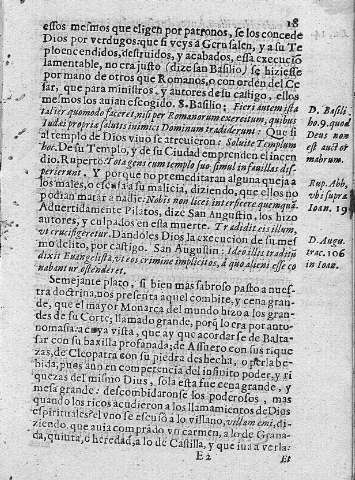 18
essos mesmos que eligen por patronos, se los concede
Dios por verdugos: que si veys a Gerusalen, y a su Te
plo encendidos, destruidos, y acabados, essa execució
lamentable, no era justo (dize san Basilio) se hiziesse
por mano de otros que Romanos, o con orden del Ce
sar, que para ministros, y autores de su castigo, ellos
mesmos los auian escogido. S. Basilio; Fieri autem ista
taliter quomodo faceret, nisi per Romanorum exercitum, quibus
Iudæi propria salutis inimici Dominum tradiderunt: Que si
al templo de Dios viuo se atreuieron: Soluite Templum
hoc. De su Templo, y de su Ciudad emprenden el incen
dio. Ruperto: Tota gens cum templo suo simul in fauillas dis-
perierunt. Y porque no premeditaran alguna queja a
los males, o escusa a su malicia, diziendo, que ellos no
podian matar a nadie: Nobis non licet interficere quemquã.
Aduertidamente Pilatos, dize San Augustin, los hizo
autores, y culpados en essa muerte. Tradidit eis illum,
vt crucifigeretur. Dandoles Dios la execucion de su mes
mo delito, por castigo. San Augustin: Ideo illis traditũ
dixit Euangelista, vt eos crimine implicitos, à quo alieni esse co
nabantur ostenderet.
Semejante plato, si bien mas sabroso pasto a nues-
tra dotrina, nos presenta aquel combite, y cena gran-
de, que el mayor Monarca del mundo hizo a los gran-
des de su Corte; llamado grande, porq̃ lo era por anto-
nomasia: a cuya vista, que ay que acordarse de Balta-
sar con su baxilla profanada; de Assuero con sus rique
zas, de Cleopatra con su piedra deshecha, o perla be-
bida, pues aun en competencia del infinito poder, y ri
quezas del mismo Dius, sola esta fue cena grande, y
mesa grande: descombidaronse los poderosos, mas
quando los ricos acudieron a los llamamientos de Dios
espirituales? el vno se escusò a lo villano, villam emi, di-
ziendo, que auia comprado vn carmen, a lo de Grana-
da, quinta, ó heredad, a lo de Castilla, y que iua a verla:
E 2
Et
D. Basili
ho. 9. quod
Deus non
est auctor
marbrum.
Rup. Abb,
vbi supra
Ioan. 19
D. Augu.
trac. 106
in Ioan.